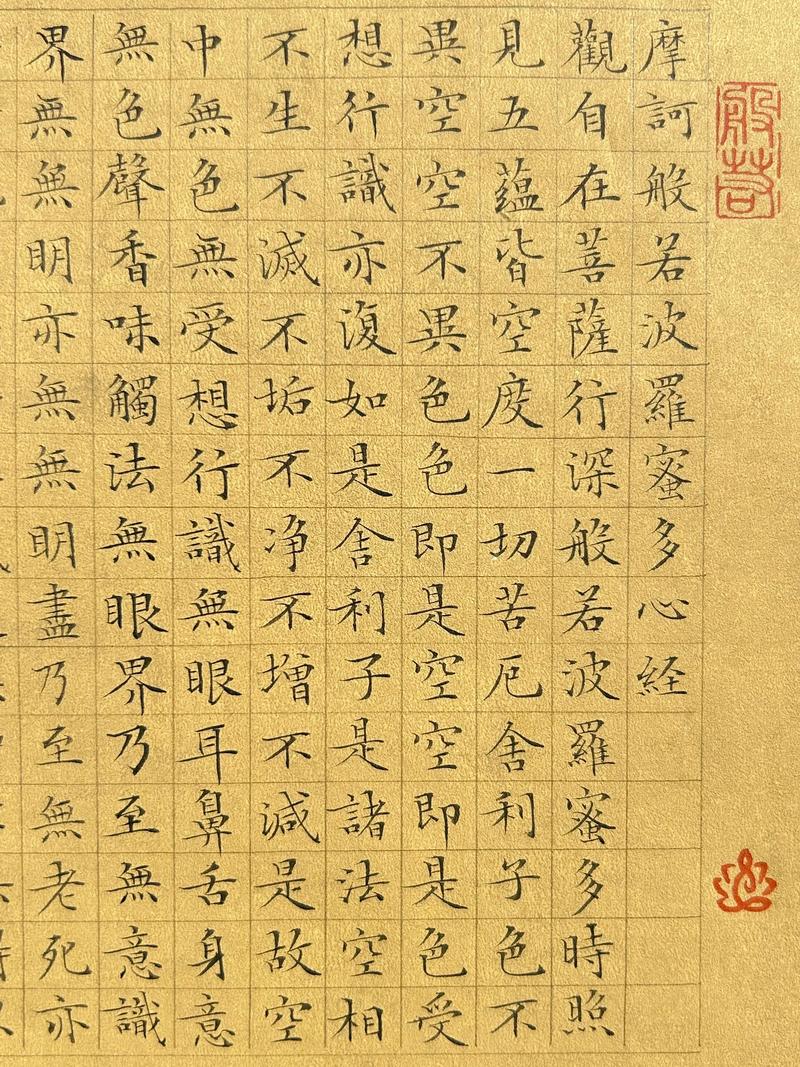 般若
摩訶般若波羅蜜多心経
觀自在菩薩行深般若波羅蜜多時照
見五蘊皆空度一切苦厄舍利子色不
異空空不異色色即是空空即是色受
想行識亦復如是舍利子是諸法空相
不生不滅不垢不净不增不減是故空
中無色無受想行識無眼耳鼻舌身意
無色聲香味觸法無眼界乃至無意識
界無無明亦無無明盡乃至無老死亦